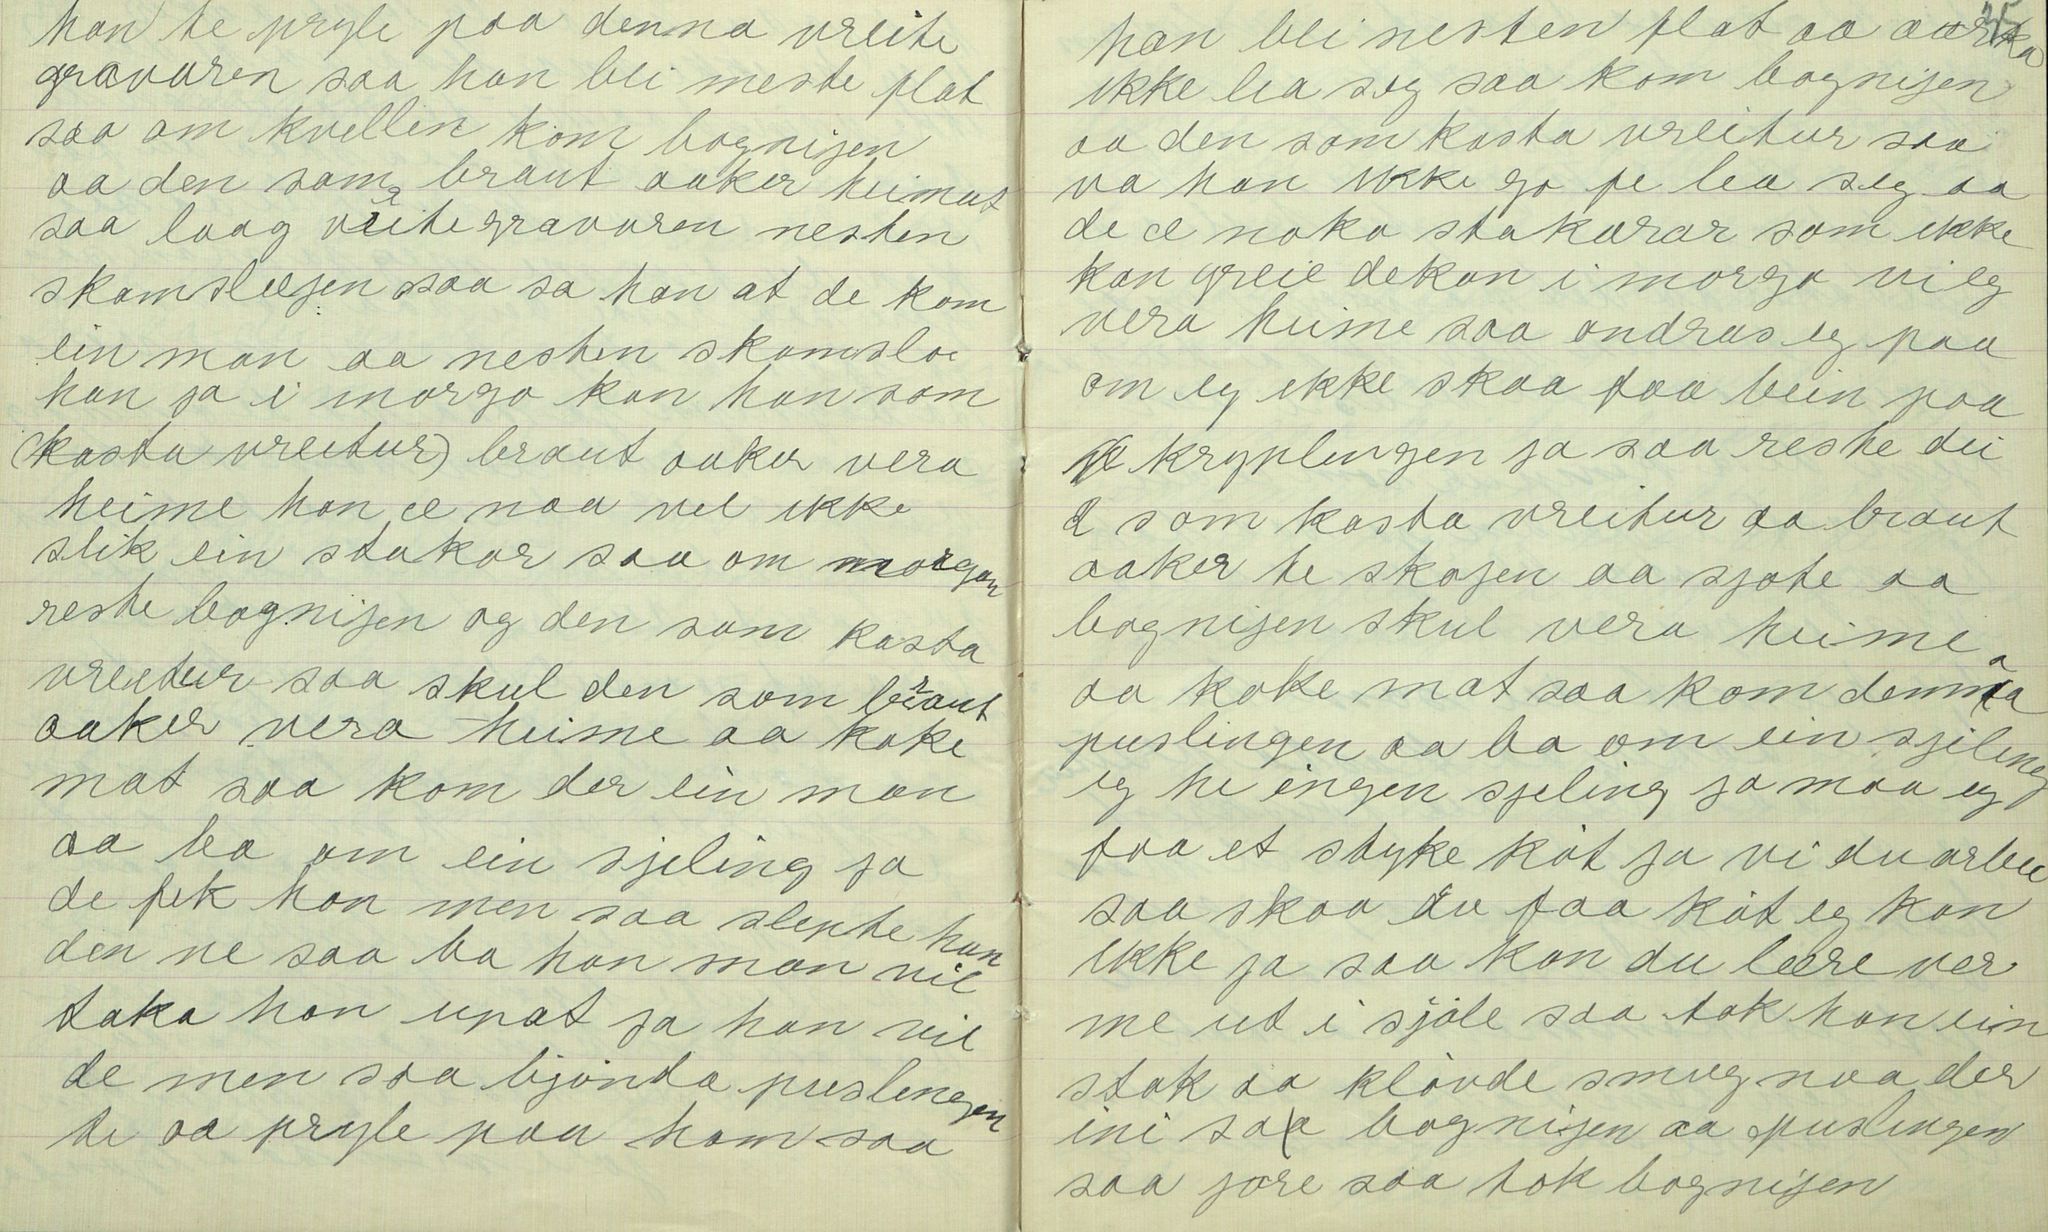 han te pryle paa denna vreite
gravaren saa han bli meste flat
saa om kvellin kom bognisen
aa den som braut aaker heimat
saa laag vreitegravaren nesten
skamslægen saa sa han at de kom
ein man aa nesten skamslo
han ja i morgo kan han som
(kasta vreitur) braut aaker vera
heime han æ naa vel ikke
slik ein stakar saa om morgon
reste bognisen og den som kasta
vreitur saa skul den som braut
aaker vera heime aa koke
mat saa kom der ein man
aa ba om ein sjeling ja
de fek han men saa slepte han
den ne saa ba han man vil
taka han upat ja han vil
de men saa bjönda puslingen
te aa pryle paa ham saa
35
han bli nesten flat aa aarka
ikke lea seg saa kom bognisen
aa den som kasta vreitur saa
va han ikke go fe lea seg aa
de æ noka stakarar som ikke
kan greie dekan i morgo vil eg
vera heime saa ondras eg paa
om eg ikke skaa faa bein paa
krypplingen ja saa reste dei
2 som kasta vreitur aa braut
aaker te skogen aa sjote aa
bognisen skul vera heime
aa koke mat saa kom denna
puslingen aa ba om ein sjeling
eg he ingen sjeling ja maa eg
faa et styke köt ja vi du arbei
saa skaa du faa köt eg kan
ikke ja saa kan du lære ver
me ut i sjöle saa tok han ein
stok aa klövde smog naa der
ini saa bognisen aa puslingen
saa jore saa tok bognisen